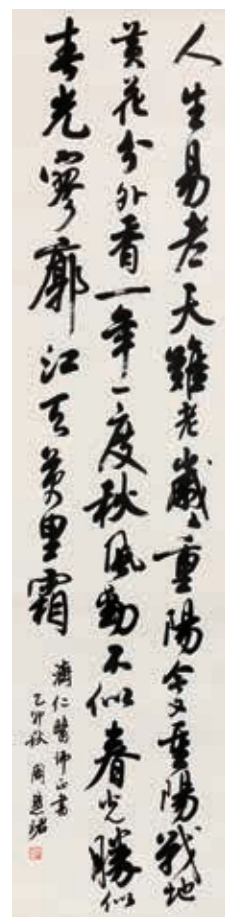 人生易老天難老歲々重陽今又重陽戰地
黄花分外香一年一度秋風勁不似春光勝似
春光寥廓江天萬里霜
濟仁醫師正書
乙卯秋 周慧珺